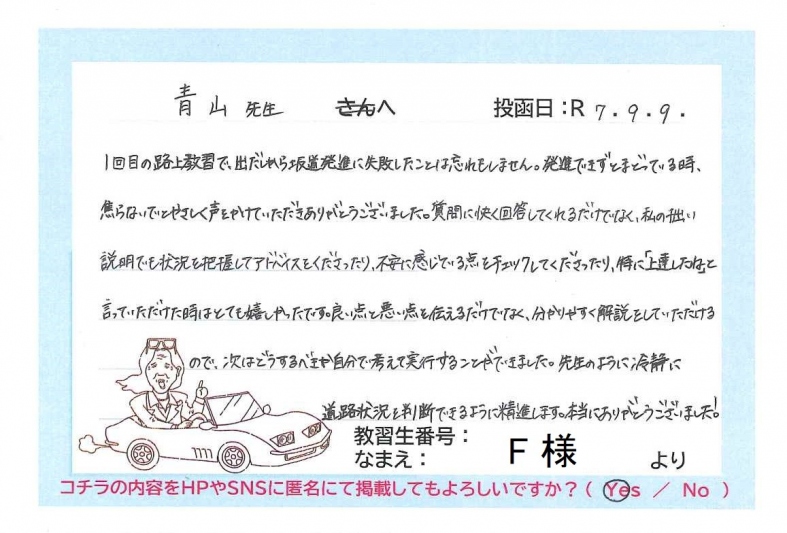 青山 先生 さんへ 投函日:R 7.9.9.
1回目の路上教習で、出だしから坂道発進に失敗したことは忘れもしません。発進できずとまどっている時、
焦らないでとやさしく声をかけていただきありがとうございました。質問に快く回答してくれるだけでなく、私の拙い
説明でも状況を把握してアドバイスをくださったり、不安に感じている点をチェックしてくださったり、特に「上達したね」と
言っていただけた時はとても嬉しかったです。良い点と悪い点を伝えるだけでなく、分かりやすく解説をしていただける
ので、次はどうするべきか自分で考えて実行することができました。先生のように冷静に
道路状況を判断できるように精進します。本当にありがとうございました!
教習生番号:
なまえ: F 様 より
コチラの内容をHPやSNSに匿名にて掲載してもよろしいですか?( Yes / No )